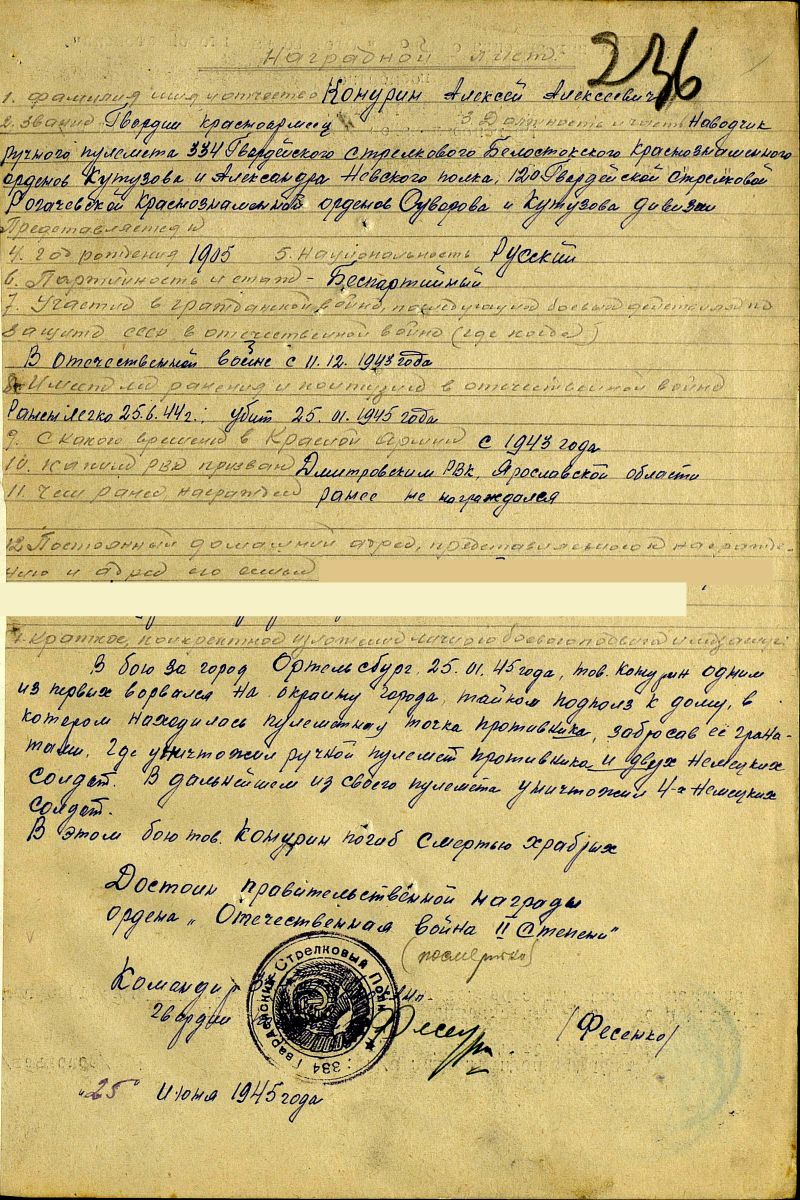 236
Наградной лист.
1. фамилия имя и отчество Конурин Алексей Алексеевич
2. Звание Гвардии красноармеец 3. Должность и часть Наводчик
ручного пулемета 334 Гвардейского стрелкового Белостокского краснознаменного
орденов Кутузова и Александра Невского полка, 120 Гвардейской стрелковой
Рогачевской краснознаменной орденов Суворова и Кутузова дивизии
Представляется к
4. год рождения 1905 5. Национальность Русский
6. Партийность и стаж - Беспартийный
7. Участие в гражданской войне, последующих боевых действиях по
защите СССР в отечественной войне (где когда)
В Отечественной войне с 11.12.1943 года
8. Имеет ли ранения и контузии в отечественной войне
Ранен легко 25.6.44 г.; убит 25.01.1945 года
9. С какого времени в Красной Армии с 1943 года
10. Каким РВК призван Дмитровским РВК, Ярославской области
11. Чем ранее награжден ранее не награждался
12. Постоянный домашний адрес, представляемого к награжде-
нию и адрес его семьи
краткое, конкретное изложение личного боевого подвига или заслуг:
В бою за город Ортельсбург, 25.01.45 года, тов. Конурин одним
из первых ворвался на окраину города, тайком подполз к дому, в
котором находилась пулеметная точка противника, забросав её грана-
тами, где уничтожил ручной пулемет противника и двух немецких
солдат. В дальнейшем из своего пулемета уничтожил 4-х немецких
солдат.
В этом бою тов. Конурин погиб смертью храбрых
Достоин правительственной награды
ордена „Отечественная война II Степени"
(посмертно)
Командир
Гвардии
(Фесенко)
334 Гвардейский Стрелковый Полк
"25" Июня 1945 года